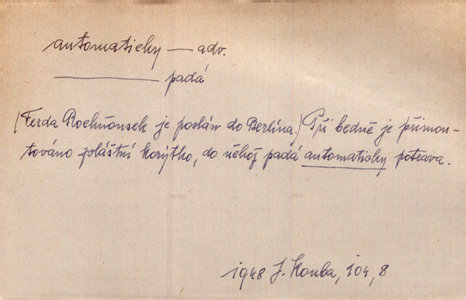 automaticky — adv.
——— padá
(Ferda Rochňousek je poslán do Berlína.) Při bedně je přimon-
továno zvláštní korýtko, do něhož padá automaticky potrava.
1948 J. Kouba, 104, 8